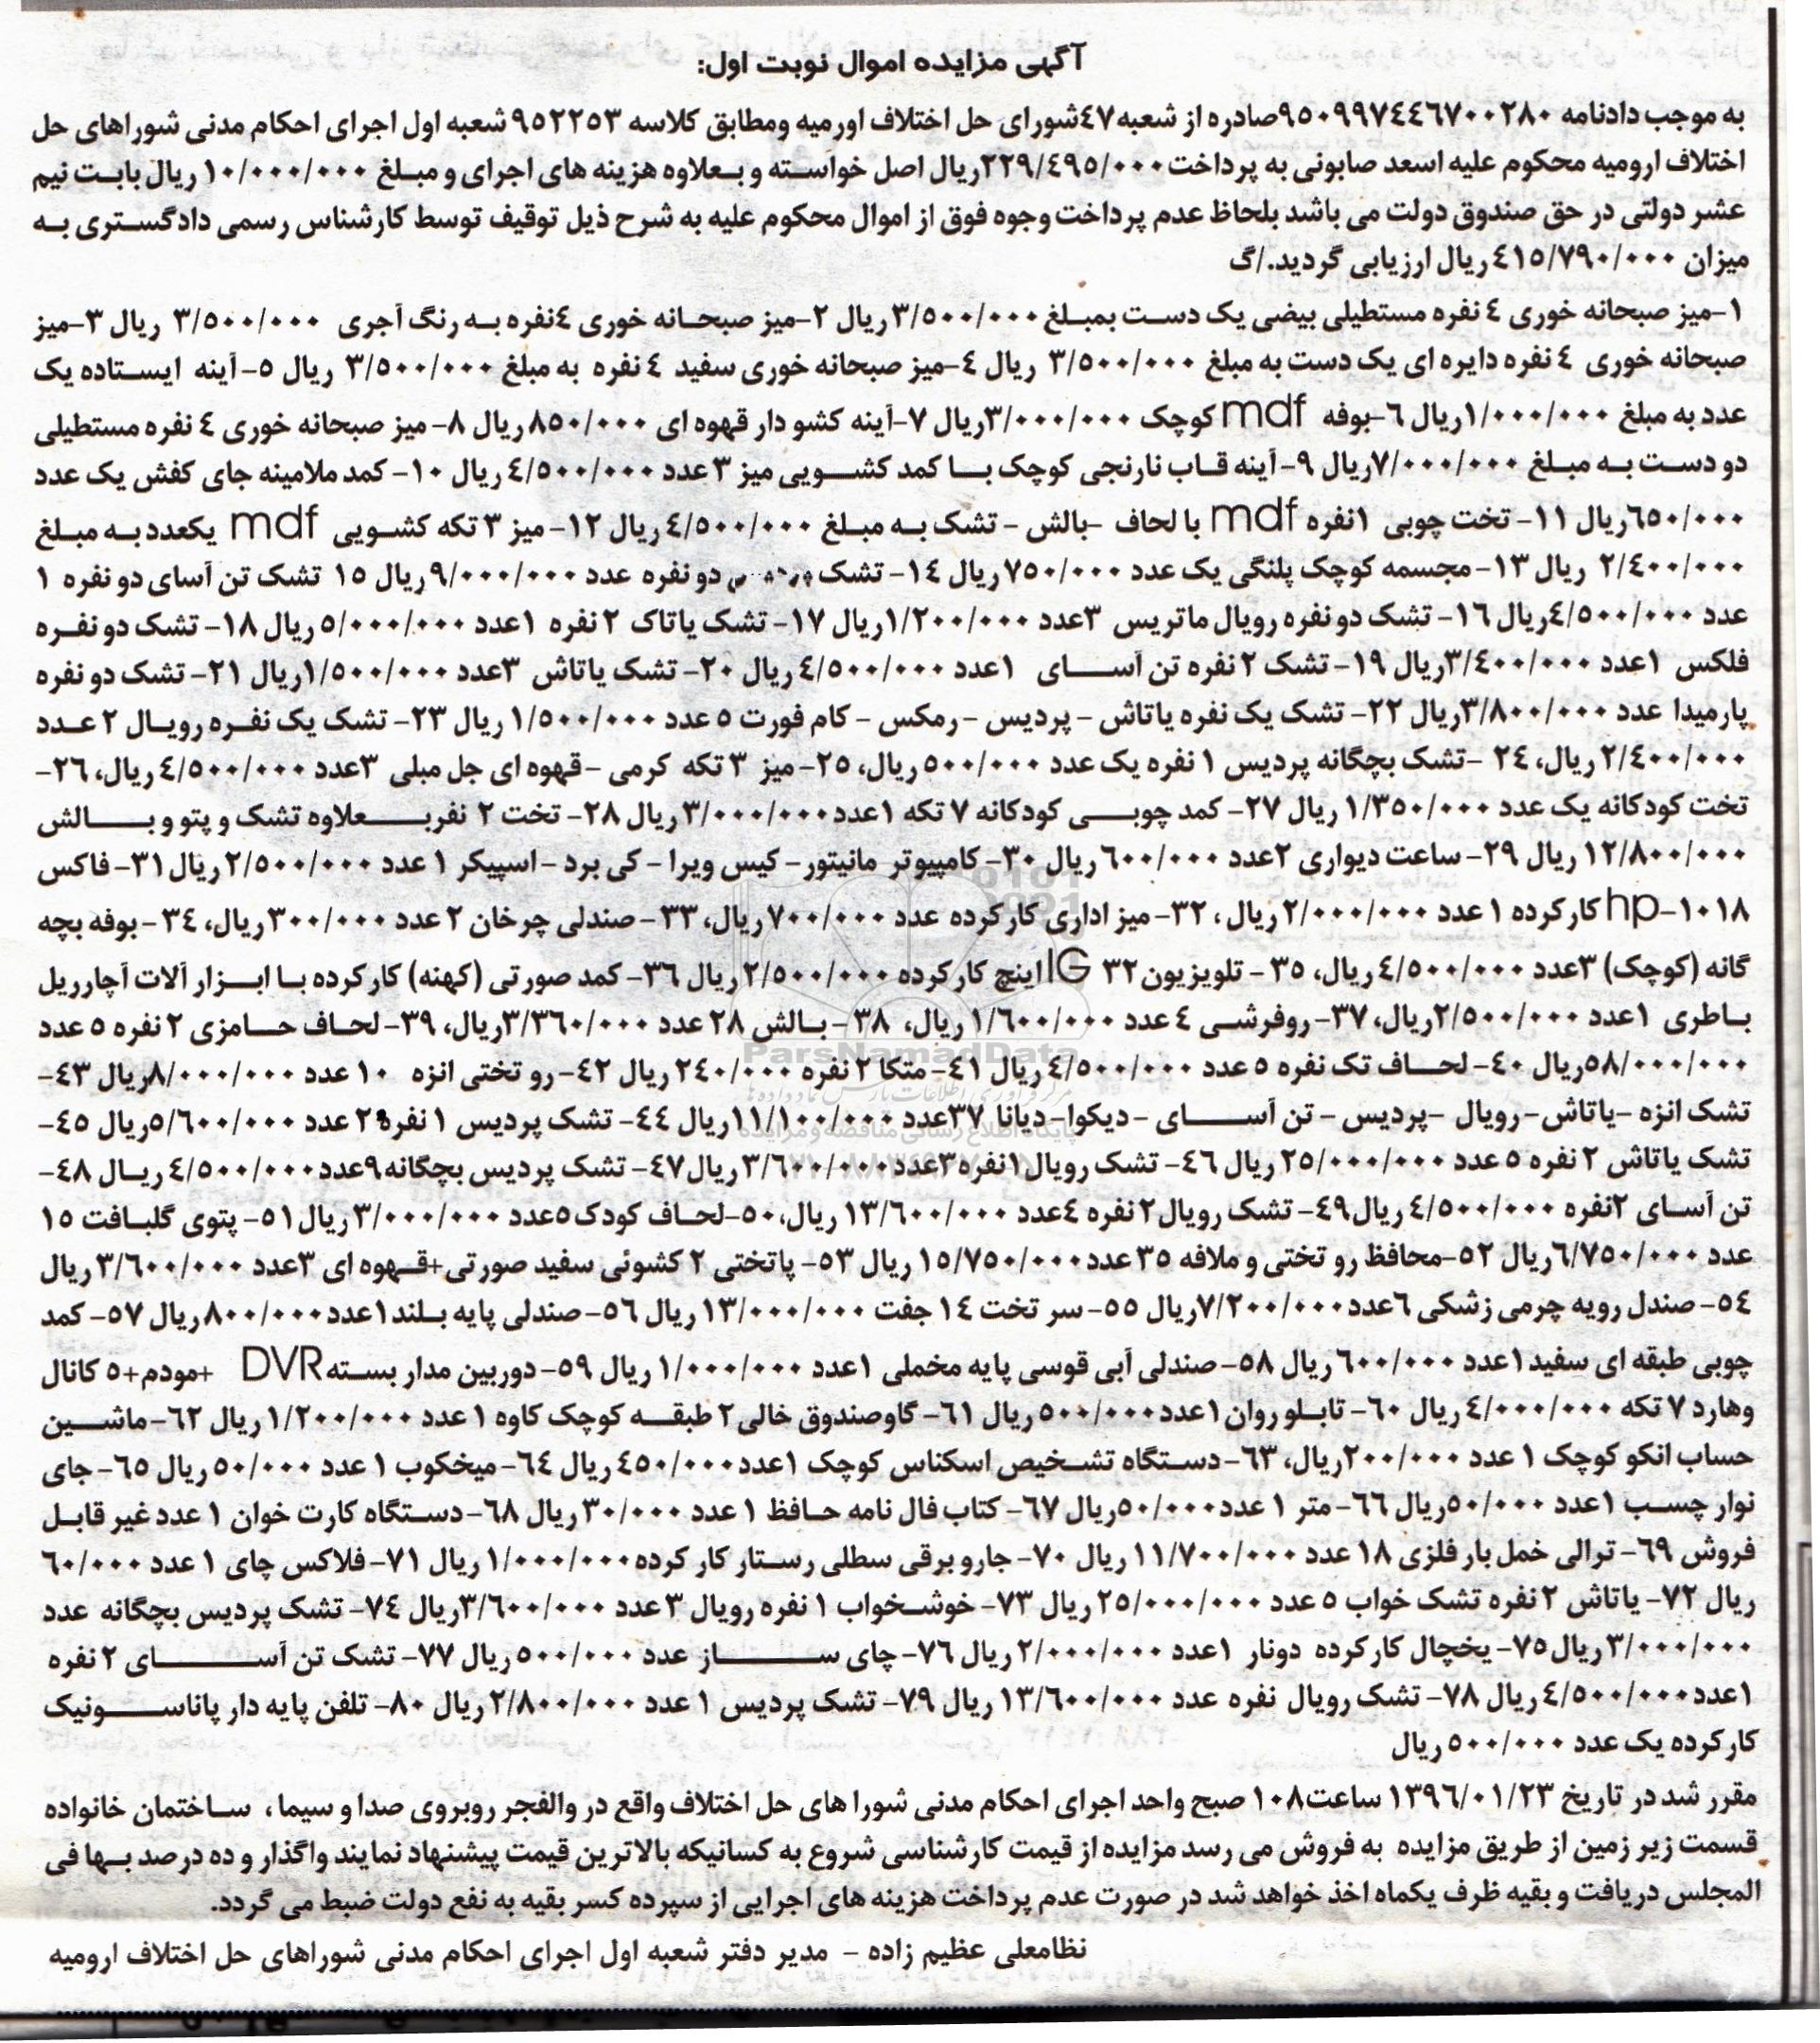 آگهی مزایده اموال نوبت اول:
به موجب دادنامه ۹۵۰۹۹۷٤٤٦۷۰۰۲۸۰صادره از شعبه٤۷شورای حل اختلاف اورمیه ومطابق کلاسه ۹۵۲۲۵۳ شعبه اول اجرای احکام مدنی شوراهای حل
اختلاف ارومیه محکوم علیه اسعد صابونی به پرداخت۲۲۹/٤۹۵/۰۰۰ریال اصل خواسته و بعلاوه هزینه های اجرای و مبلغ ۱۰/۰۰۰/۰۰۰ ریال بابت نیم
عشر دولتی در حق صندوق دولت می باشد بلحاظ عدم پرداخت وجوه فوق از اموال محکوم علیه به شرح ذیل توقیف توسط کارشناس رسمی دادگستری به
میزان ٤۱۵/۷۹۰/۰۰۰ریال ارزیابی گردید./گ
۱-میز صبحانه خوری ٤ نفره مستطیلی بیضی یک دست بمبلغ ۳/۵۰۰/۰۰۰ریال ۲-میز صبحانه خوری ٤نفره به رنگ آجری ۳/۵۰۰/۰۰۰ ریال ۳-میز
صبحانه خوری ٤ نفره دایره ای یک دست به مبلغ ۳/۵۰۰/۰۰۰ ریال ٤-میز صبحانه خوری سفید ٤ نفره به مبلغ ۳/۵۰۰/۰۰۰ ریال ۵- آینه ایستاده یک
عدد به مبلغ ۱/۰۰۰/۰۰۰ریال ٦-بوفه mdf کوچک ۳/۰۰۰/۰۰۰ریال ۷-آینه کشو دار قهوه ای ۸۵۰/۰۰۰ریال ۸- میز صبحانه خوری ٤ نفره مستطیلی
دو دست به مبلغ ۷/۰۰۰/۰۰۰ریال ۹- آینه قاب نارنجی کوچک با کمد کشویی میز ۳ عدد ٤/۵۰۰/۰۰۰ریال ۱۰- کمد ملامینه جای کفش یک عدد
٦۵۰/۰۰۰ریال ۱۱- تخت چوبی ۱نفره mdf با لحاف -بالش - تشک به مبلغ ٤/۵۰۰/۰۰۰ریال ۱۲- میز ۳ تکه کشویی mdf یکعدد به مبلغ
۲/٤۰۰/۰۰۰ ریال ۱۳- مجسمه کوچک پلنگی یک عدد ۷۵۰/۰۰۰ریال ۱٤- تشک دو نفره عدد ۹/۰۰۰/۰۰۰ریال ۱۵ تشک تن آسای دو نفره ۱
عدد ٤/۵۰۰/۰۰۰ریال ۱٦- تشک دو نفره رویال ماتریس ۳عدد ۱/۲۰۰/۰۰۰ریال ۱۷- تشک یاتاک ۲ نفره ۱عدد ۵/۰۰۰/۰۰۰ریال ۱۸- تشک دو نفره
فلکس ۱عدد ۳/٤۰۰/۰۰۰ریال ۱۹- تشک ۲ نفره تن آسای ۱عدد ٤/۵۰۰/۰۰۰ریال ۲۰- تشک یاتاش ۳عدد ۱/۵۰۰/۰۰۰ریال ۲۱- تشک دو نفره
پارمیدا عدد ۳/۸۰۰/۰۰۰ریال ۲۲- تشک یک نفره یاتاش - پردیس -رمکس - کام فورت ۵ عدد ۱/۵۰۰/۰۰۰ ریال ۲۳- تشک یک نفره رویال ۲ عدد
۲/٤۰۰/۰۰۰ ریال، ۲٤ -تشک بچگانه پردیس ۱ نفره یک عدد ۵۰۰/۰۰۰ ریال، ۲۵-میز ۳ تکه کرمی -قهوه ای جل مبلی ۳عدد ٤/۵۰۰/۰۰۰ریال، ۲٦-
تخت کودکانه یک عدد ۱/۳۵۰/۰۰۰ ریال ۲۷- کمد چوبی کودکانه ۷ تکه ۱عدد۳/۰۰۰/۰۰۰ریال ۲۸- تخت ۲ نفربعلاوه تشک و پتو و بالش
۱۲/۸۰۰/۰۰۰ ریال ۲۹- ساعت دیواری ۲عدد ٦۰۰/۰۰۰ریال ۳۰-کامپیوتر مانیتور- کیس ویرا - کی برد -اسپیکر ۱ عدد ۲/۵۰۰/۰۰۰ریال ۳۱- فاکس
hp-۱۰۱۸ کارکرده ۱ عدد ۲/۰۰۰/۰۰۰ریال ، ۳۲- میز اداری کارکرده عدد ۷۰۰/۰۰۰ریال، ۳۳- صندلی چرخان ۲ عدد ۳۰۰/۰۰۰ریال، ۳٤- بوفه بچه
گانه (کوچک) ۳عدد ٤/۵۰۰/۰۰۰ریال، ۳۵- تلویزیون lG ۳۲اینچ کارکرده ۲/۵۰۰/۰۰۰ریال ۳٦- کمد صورتی (کهنه) کارکرده با ابزار آلات آچارریل
باطری ۱عدد ۲/۵۰۰/۰۰۰ریال، ۳۷- روفرشی ٤ عدد ۱/٦۰۰/۰۰۰ریال، ۳۸- بالش ۲۸ عدد ۳/۳٦۰/۰۰۰ریال، ۳۹- لحاف حامزی ۲ نفره ۵ عدد
۵۸/۰۰۰/۰۰۰ریال ٤۰- لحاف تک نفره ۵ عدد ٤/۵۰۰/۰۰۰ریال ٤۱- متکا ۲ نفره ۲٤۰/۰۰۰ریال ٤۲- رو تختی انزه ۱۰ عدد ۸/۰۰۰/۰۰۰ریال ٤۳-
تشک انزه -یاتاش- رویال -پردیس - تن آسای - دیکوا- دیانا ۳۷عدد ۱۱/۱۰۰/۰۰۰ریال ٤٤- تشک پردیس ۱ نفره۲ عدد ۵/٦۰۰/۰۰۰ریال ٤۵-
تشک یاتاش ۲ نفره ۵ عدد ۲۵/۰۰۰/۰۰۰ ریال ٤٦- تشک رویال۱نفره۳عدد۳/٦۰۰/۰۰۰ریال٤۷- تشک پردیس بچگانه۹عدد٤/۵۰۰/۰۰۰ریال ٤۸-
تن آسای ۲نفره ٤/۵۰۰/۰۰۰ریال٤۹- تشک رویال۲نفره ٤عدد ۱۳/٦۰۰/۰۰۰ ریال،۵۰-لحاف کودک۵عدد ۳/۰۰۰/۰۰۰ریال۵۱- پتوی گلبافت ۱۵
عدد ٦/۷۵۰/۰۰۰ریال ۵۲-محافظ رو تختی و ملافه ۳۵ عدد۱۵/۷۵۰/۰۰۰ ریال ۵۳- پاتختی ۲ کشوئی سفید صورتی+قهوه ای ۳عدد ۳/٦۰۰/۰۰۰ریال
۵٤- صندل رویه چرمی زشکی ٦عدد۷/۲۰۰/۰۰۰ریال ۵۵- سر تخت ۱٤ جفت ۱۳/۰۰۰/۰۰۰ریال ۵٦- صندلی پایه بلند۱عدد۸۰۰/۰۰۰ریال ۵۷- کمد
چوبی طبقه ای سفید۱عدد ٦۰۰/۰۰۰ریال ۵۸- صندلی آبی قوسی پایه مخملی ۱عدد ۱/۰۰۰/۰۰۰ریال ۵۹- دوربین مدار بستهDVR +مودم+۵ کانال
وهارد ۷ تکه ٤/۰۰۰/۰۰۰ریال ٦۰- تابلو روان۱عدد۵۰۰/۰۰۰ریال ٦۱- گاوصندوق خالی۲ طبقه کوچک کاوه ۱ عدد ۱/۲۰۰/۰۰۰ریال ٦۲-ماشین
حساب انکو کوچک ۱ عدد ۲۰۰/۰۰۰ریال، ٦۳- دستگاه تشخیص اسکناس کوچک ۱عدد٤۵۰/۰۰۰ریال ٦٤- میخکوب ۱ عدد ۵۰/۰۰۰ریال ٦۵- جای
نوار چسب ۱عدد ۵۰/۰۰۰ریال ٦٦- متر ۱ عدد۵۰/۰۰۰ریال ٦۷- کتاب فال نامه حافظ ۱ عدد ۳۰/۰۰۰ریال ٦۸- دستگاه کارت خوان ۱ عدد غیر قابل
فروش ٦۹- ترالی خمل بار فلزی ۱۸ عدد ۱۱/۷۰۰/۰۰۰ ریال ۷۰- جارو برقی سطلی رستار کار کرده۱/۰۰۰/۰۰۰ریال ۷۱- فلاکس چای ۱ عدد ٦۰/۰۰۰
ریال ۷۲- یاتاش ۲ نفره تشک خواب ۵ عدد ۲۵/۰۰۰/۰۰۰ریال ۷۳- خوشخواب ۱ نفره رویال ۳ عدد ۳/٦۰۰/۰۰۰ریال ۷٤- تشک پردیس بچگانه عدد
۳/۰۰۰/۰۰۰ریال۷۵- یخچال کارکرده دونار ۱عدد ۲/۰۰۰/۰۰۰ریال ۷٦- چای ساز عدد ۵۰۰/۰۰۰ریال ۷۷- تشک تن آسای ۲ نفره
۱عدد٤/۵۰۰/۰۰۰ریال ۷۸- تشک رویال نفره عدد ۱۳/٦۰۰/۰۰۰ ریال ۷۹- تشک پردیس ۱ عدد ۲/۸۰۰/۰۰۰ریال ۸۰- تلفن پایه دار پاناسونیک
کارکرده یک عدد ۵۰۰/۰۰۰ریال
مقرر شد در تاریخ ۱۳۹٦/۰۱/۲۳ ساعت۱۰۸ صبح واحد اجرای احکام مدنی شورا های حل اختلاف واقع در والفجر روبروی صدا و سیما ، ساختمان خانواده
قسمت زیر زمین از طریق مزایده به فروش می رسد مزایده از قیمت کارشناسی شروع به کسانیکه بالاترین قیمت پیشنهاد نمایند واگذار و ده درصد بها فی
المجلس دریافت و بقیه ظرف یکماه اخذ خواهد شد در صورت عدم پرداخت هزینه های اجرایی از سپرده کسر بقیه به نفع دولت ضبط می گردد.
نظامعلی عظیم زاده - مدیر دفتر شعبه اول اجرای احکام مدنی شوراهای حل اختلاف ارومیه
ParsNamadData
پایگاه اطلاع رسانی مناقصه و مزایده